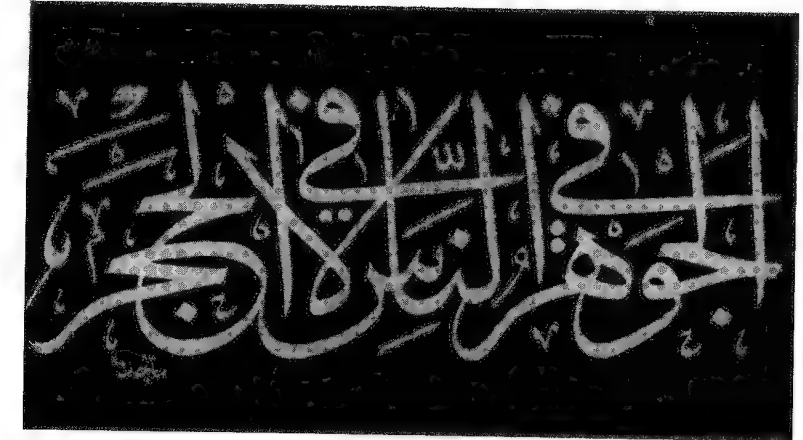 الجوهر في الناس لا في الحجر